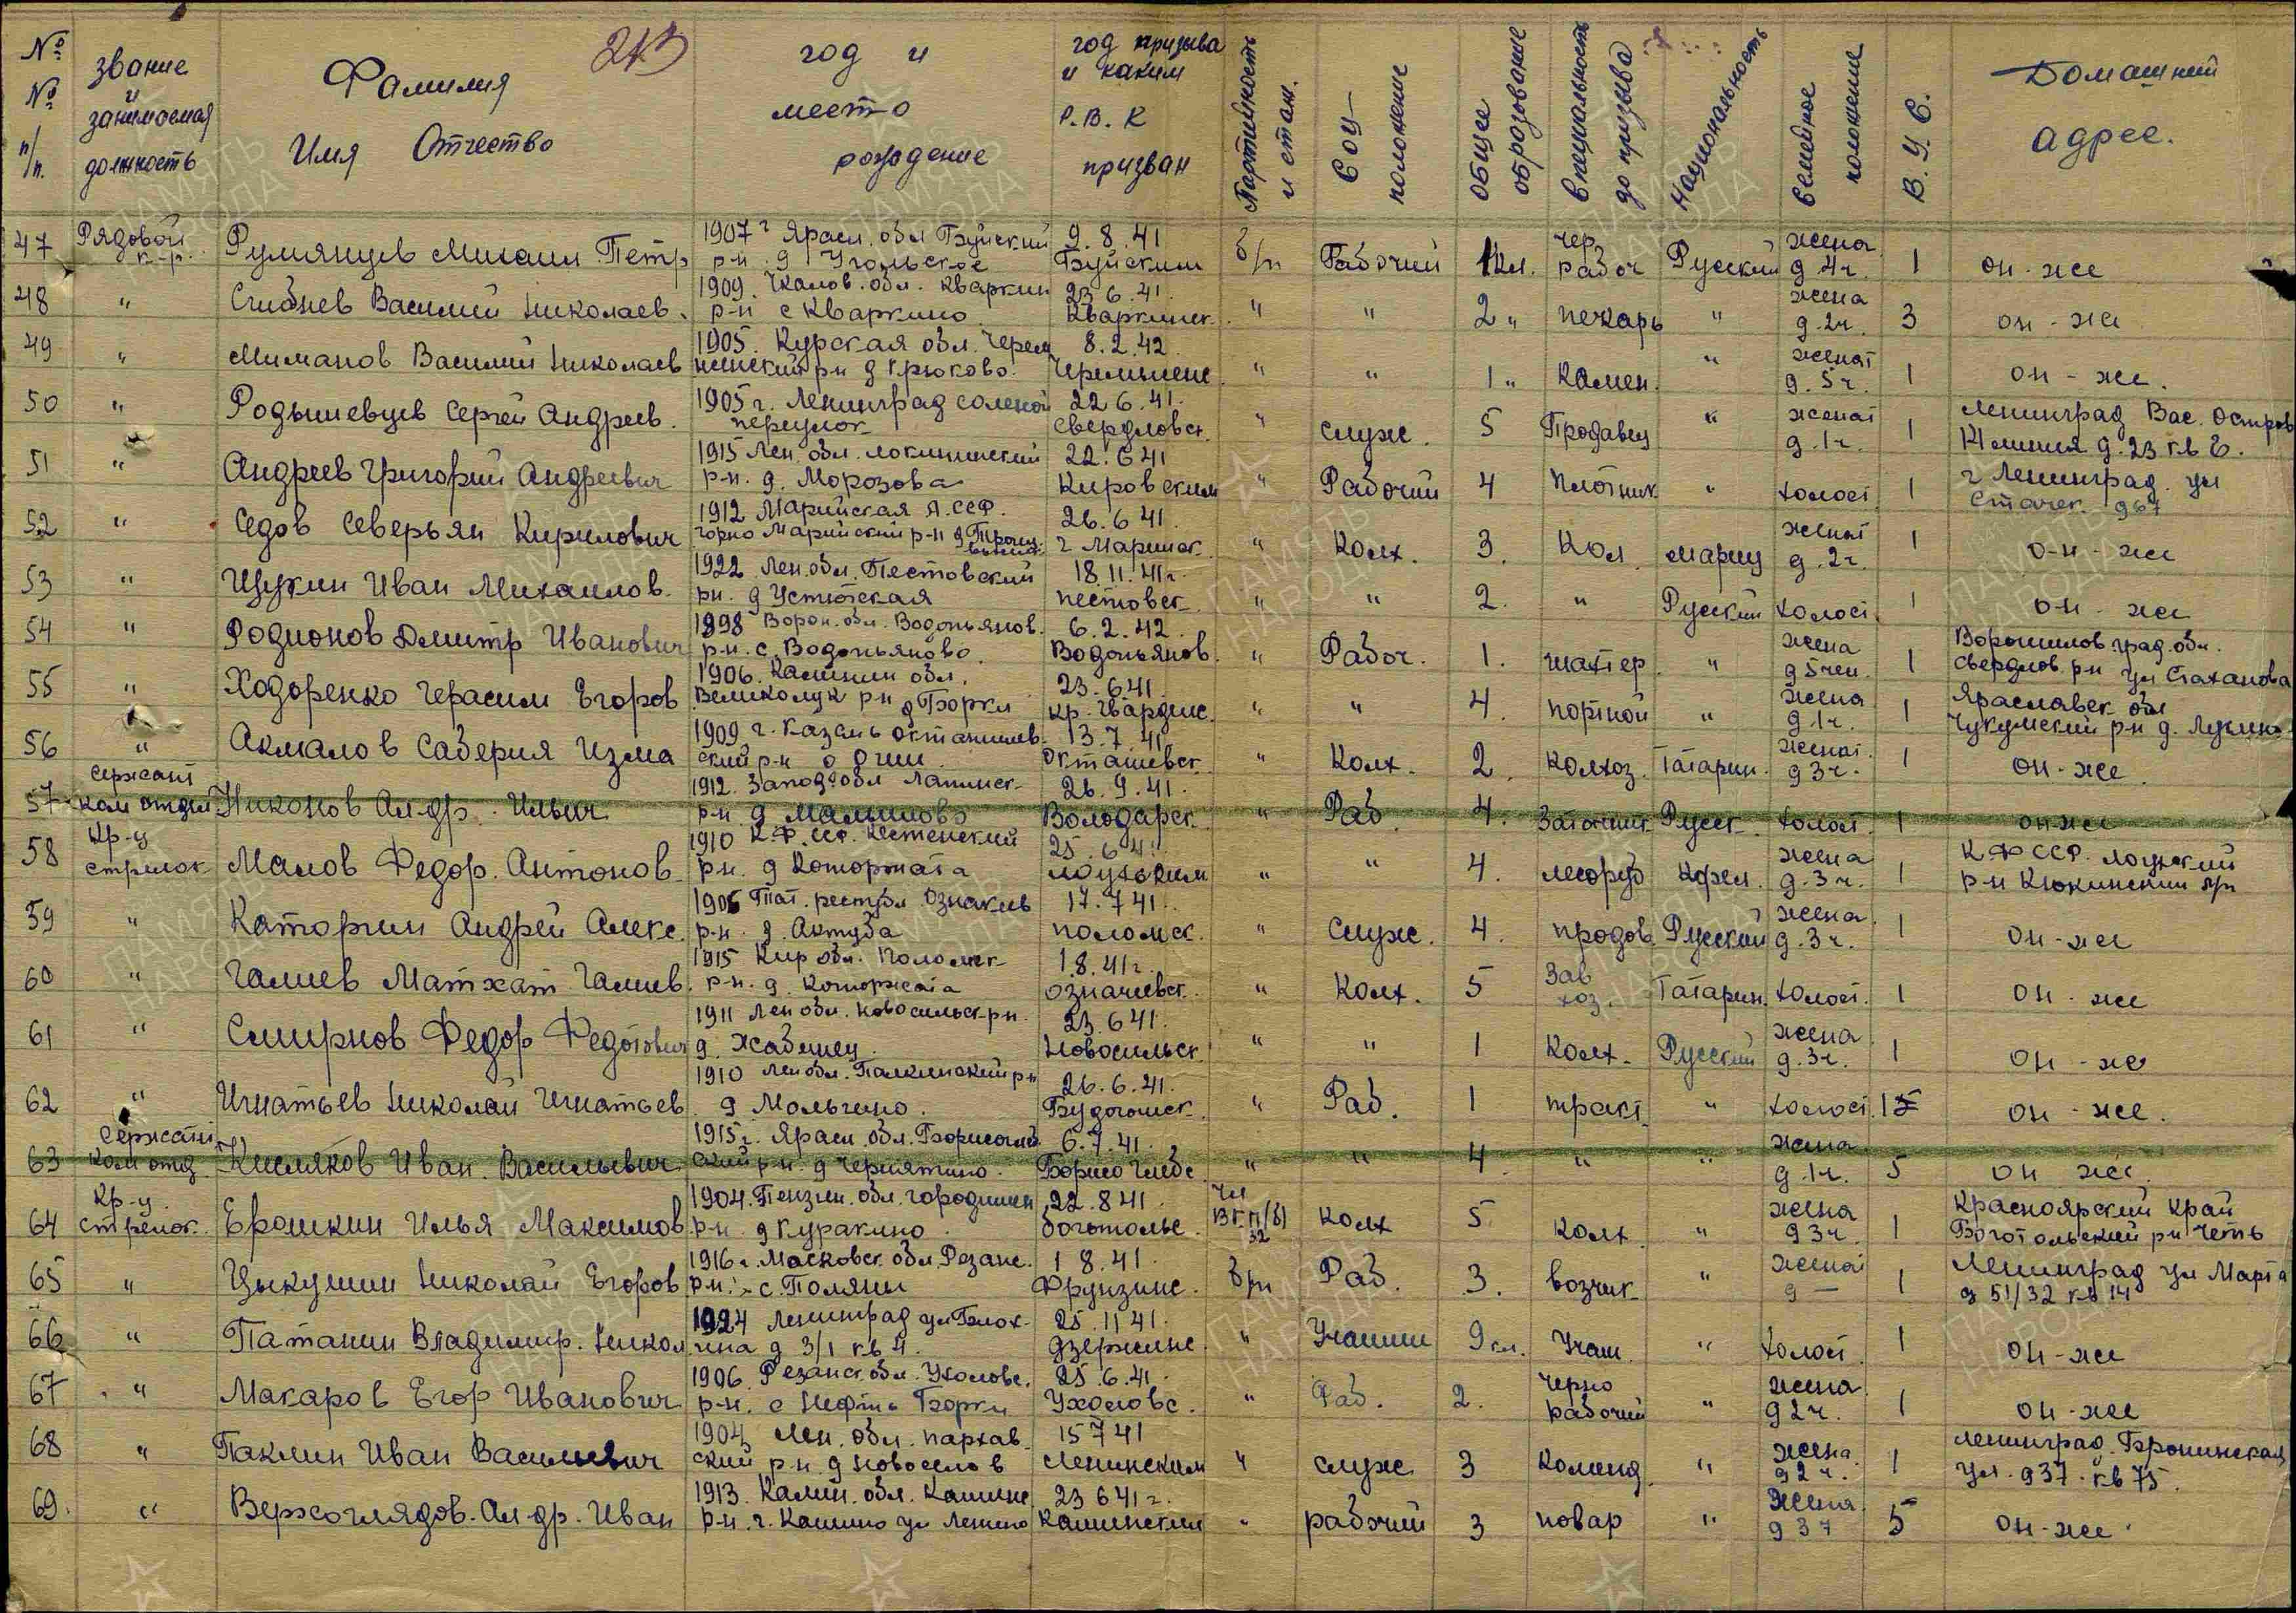 213
№ № п/п.
звание и занимаемая должность
Фамилия Имя Отчество
год и место рождение
год призыва и каким Р.В.К призван
Партийность и стаж.
Соц-положение
Общее образование
специальность до призыва
Национальность
семейное положение
В.У.С.
Домашний адрес.
47 Рядовой к-р. Румянцев Михаил Петр 1907 г Яросл. обл Буйский р-н д Угольское 9.8.41 Буйским б/п Рабочий 1 кл. чер рабоч Русский жена д 4 ч. 1 он-же
48 " Василий Николаев. 1909. Чкалов. обл. Кваркин р-н с Кваркино 23 6.41. Кваркинск. " " 2 " пекарь " жена д.2ч. 3 он-же
49 " Миманов Василий Николаев 1905. Курская обл. Черем р-н д Крюково. 8.2.42. " " 1 " Камен. " женат д.5ч. 1 он-же.
50 " Родышевцев Сергей Андреев. 1905 г. Ленинград соленой переулок 22 6.41. свердловск. " служ. 5 Продавец " женат д.1ч. 1 Ленинград Вас. Остров линия д.23 кв 6.
51 " Андреев Григорий Андреевич 1915 Лен. обл. локнянский р-н. д. Морозова 22.6 41 Кировским " Рабочий 4 плотник " холост 1 г Ленинград. ул Стачек. д67
52 " Седов Северьян Кирилович 1912 Марийская А.ССР. Горно Марийский р-н д 26.6 41. г Марийск. " Колх. 3. Кол. мариец женат д.2ч. 1 о-н-же
53 " Щукин Иван Михаилов. 1922 Лен.обл. Пестовский рн. д Устюцкая 18.11.41г. пестовск. " " 2. " Русский холост. 1 он-же
54 " Родионов Дмитр Иванович 1898 Ворон. обл. Водопьянов. р-н. с. Водопьяново. 6.2.42. Водопьянов. " Рабоч. 1. шахтер. " жена д 5чел. 1 Ворошилов град.обл. свердлов. р-н ул Стаханова
55 " Ходоренко Герасим Егоров 1906. Калинин обл. Великолук р-н д Борки 23.6.41. кр. Гвардейс. " " 4. портной " жена д.1ч. 1 Ярославск. обл р-н д. Лукино
56 " Акмалов Саберия Изма 1909 г. Казань ский р-н 13.7.41 " Колх. 2. колхоз. Татарин. женат. д 3ч. 1 он-же.
57 сержант ком отдел Никонов Ал-др. Ильич 1912. Запад. обл р-н д Малиново 26.9.41. Володарск. " Раб. 4. Заточник Русск. холост. 1 он же
58 Кр-ц стрелок Малов Федор. Антонов 1910 К.Ф.ССР. Кестенский р-н. д 25.6 41. лоухским " " 4. лесоруб Карел. жена д.3ч. 1 К Ф ССР. лоухский р-н
59 " Каторгин Андрей Алекс. 1906 Тат. р-н. д. Актуба 17.7 41. поломск. " служ. 4. продов Русский жена д.3ч. 1 он-же
60 " Галиев Матхат Галиев. 1915 Кир обл. Поломск р-н. д. 1.8.41г. " Колх. 5 Зав хоз. Татарин. холост. 1 он-же
61 " Смирнов Федор Федотович 1911 Лен обл. Новосильск р-н. д. 23.6 41. Новосильск. " " 1 Колх. Русский жена д.3ч. 1 он-же
62 " Игнатьев Николай Игнатьев 1910 лен обл. Палкинский р-н д Мольгино. 26.6.41. Будогощск. " Раб. 1 тракт. " холост. 15 он-же.
63 Сержант ком отд. Кисляков Иван. Васильевич 1915г. Яросл. обл. ский р-н. д Чернятино. 6.7.41. Борисоглебс " " 4. " " жена д.1ч. 5 он же.
64 Кр-ц стрелок. Ерошкин Илья Максимов 1904. Пензен. обл. городищен р-н. д Куракино 22.8 41. боготольс. чл ВКП(б) 32 колх 5 колх. " жена д 3ч. 1 Красноярский край Боготольский р-н Четь
65 " Цыкушин Николай Егоров 1916г. Московск. обл. Резанс. р-н. с. Поляны 1 8.41. Фрунзенс. б/п Раб. 3. возчик " женат д — 1 Ленинград ул Марта д 51/32 кв 14
66 " Патанин Владимир. Никол. 1924 Ленинград ул Блох-ина д 3/1 кв 4. 25.11 41. дзержинс. " Учащии 9 кл. Учащ. " холост. 1 он-же
67 " Макаров Егор Иванович 1906. Резанс. обл. Ухоловс. р-н. с Борки 25.6.41. Ухоловс. " Раб. 2. черно рабочий " жена д 2ч. 1 он-же
68 " Паклин Иван Васильевич 1904 Лен. обл. пархав-ский р-н. д Новоселов 15 7 41 Ленинским " служ 3 Коменд. " жена д 2ч. 1 Ленинград. Бронинская ул. д37. кв 75.
69. " Верхоглядов. Ал-др. Иван 1913. Калин. обл. Кашинс р-н. г. Кашино ул Ленино 23 6 41 г. Кашинским " рабочий 3 повар " жена д 3 ч 5 он-же.